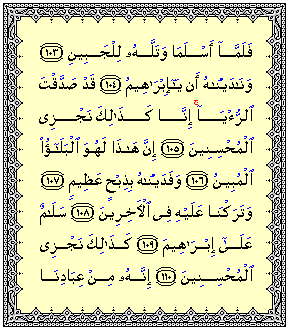 فَلَمَّآ أَسْلَمَا وَتَلَّهُۥ لِلْجَبِينِ ١٠٣
وَنَٰدَيْنَٰهُ أَن يَٰٓإِبْرَٰهِيمُ ١٠٤ قَدْ صَدَّقْتَ
ٱلرُّءْيَآ ۚ إِنَّا كَذَٰلِكَ نَجْزِى
ٱلْمُحْسِنِينَ ١٠٥ إِنَّ هَٰذَا لَهُوَ ٱلْبَلَٰٓؤُا۟
ٱلْمُبِينُ ١٠٦ وَفَدَيْنَٰهُ بِذِبْحٍ عَظِيمٍ ١٠٧
وَتَرَكْنَا عَلَيْهِ فِى ٱلْءَاخِرِينَ ١٠٨ سَلَٰمٌ
عَلَىٰٓ إِبْرَٰهِيمَ ١٠٩ كَذَٰلِكَ نَجْزِى
ٱلْمُحْسِنِينَ ١١٠ إِنَّهُۥ مِنْ عِبَادِنَا